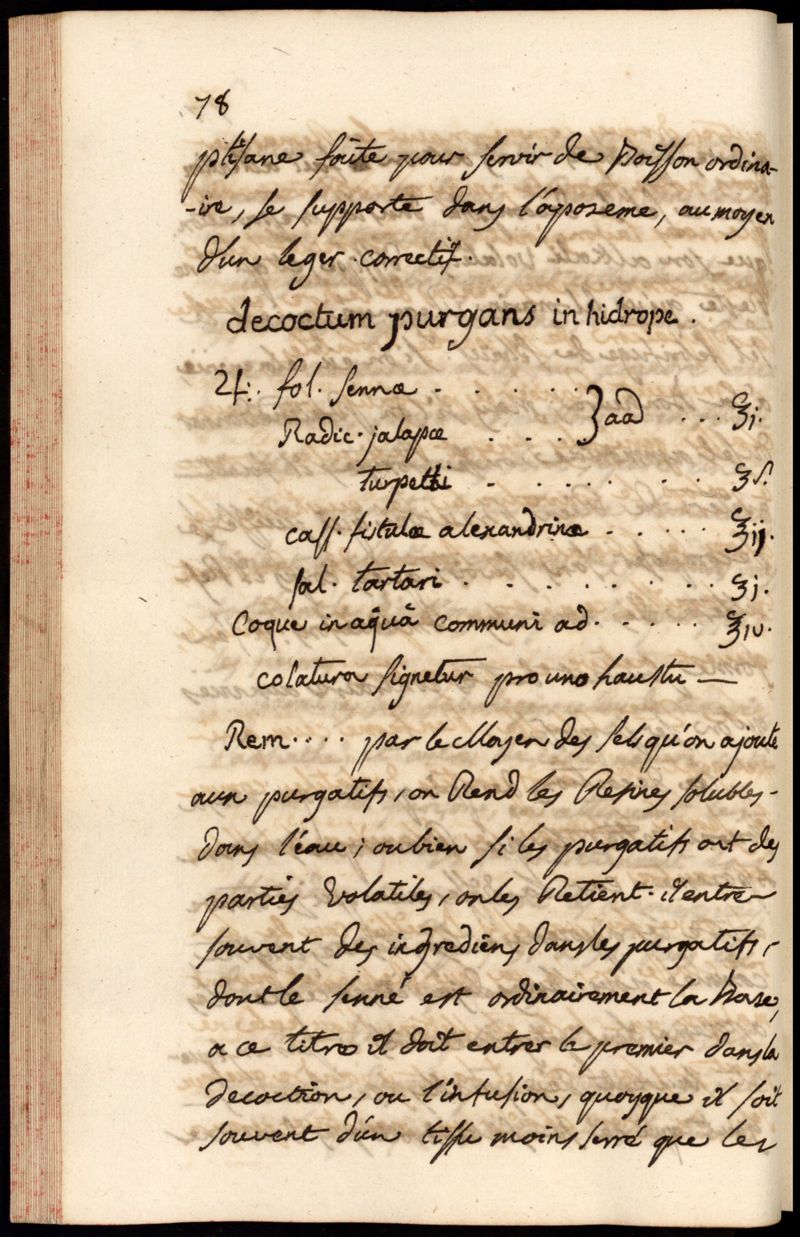 78
ptisane faite pour servir de Boisson ordina-
-ire, se supporte dans l'aposeme, au moyen
d'un leger correctif.
decoctum purgans in hidrope.
♃: fol. sennæ . . . . . }aad . . . ʒj.
Radic. jalapæ . . .
turpetti . . . . . . ʒſ.
cass. fistulæ alexandrinæ . . . . . ℥ij.
sal. tartari . . . . . . . . ʒj.
Coque in aquâ communi ad . . . . . ℥iv.
colatura signetur pro uno haustu —
Rem . . . . par le Moyen des sels qu'on ajoute
aux purgatifs, on Rend les Resines solubles-
dans l'éau; oubien si les purgatifs ont des
parties Volatiles, on les Retient. il entre
souvent des ingrediens dans les purgatifs,
dont le senné est ordinairement la Base,
a ce titre il doit entrer le premier dans la
decoction, ou l'infusion, quoyque il soit
souvent d'un tissu moins serré que les